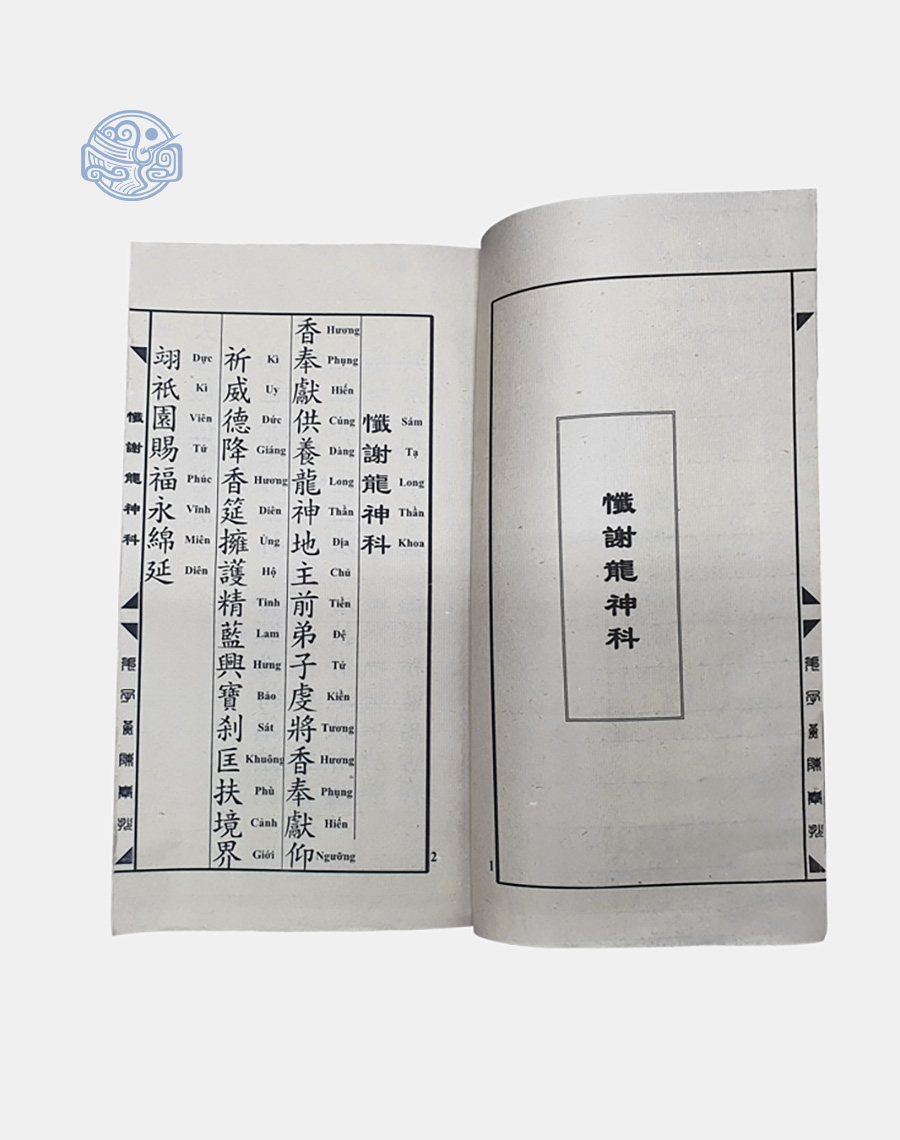 懺謝龍神科
1
懺謝龍神科
Sám Tạ Long Thần Khoa
香奉獻供養龍神地主前弟子虔將香奉獻仰
Hương Phụng Hiến Cúng Dàng Long Thần Địa Chủ Tiền Đệ Tử Kiền Tương Hương Phụng Hiến Ngưỡng
祈威德降香筵擁護精藍興寶刹匡扶境界
Kì Uy Đức Giáng Hương Diên Ủng Hộ Tinh Lam Hưng Bảo Sát Khuông Phù Cảnh Giới
翊祇園賜福永綿延
Dực Kì Viên Tứ Phúc Vĩnh Miên Diên
懺謝龍神科
2